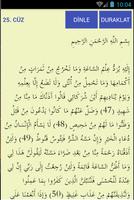 10:04
25. CÜZ
DİNLE
DURAKLAT
بِسْمِ اللَّهِ الرَّحْمَنِ الرَّحِيمِ
إِلَيْهِ يُرَدُّ عِلْمُ السَّاعَةِ وَمَا تَخْرُجُ مِنْ ثَمَرَاتٍ مِنْ
أَكْمَامِهَا وَمَا تَحْمِلُ مِنْ أُنْثَى وَلَا تَضَعُ إِلَّا بِعِلْمِهِ
وَيَوْمَ يُنَادِيهِمْ أَيْنَ شُرَكَائِي قَالُوا آذَنَّاكَ مَا مِنَّا مِنْ
شَهِيدٍ (47) وَضَلَّ عَنْهُمْ مَا كَانُوا يَدْعُونَ مِنْ
قَبْلُ وَظَنُّوا مَا لَهُمْ مِنْ مَحِيصٍ (48) لَا يَسْأَمُ
الْإِنْسَانُ مِنْ دُعَاءِ الْخَيْرِ وَإِنْ مَسَّهُ الشَّرُّ فَيَئُوسٌ
قَنُوطٌ (49) وَلَئِنْ أَذَقْنَاهُ رَحْمَةً مِنَّا مِنْ بَعْدِ
ضَرَّاءَ مَسَّتْهُ لَيَقُولَنَّ هَذَا لِي وَمَا أَظُنُّ السَّاعَةَ
قَائِمَةً وَلَئِنْ رُجِعْتُ إِلَى رَبِّي إِنَّ لِي عِنْدَهُ
لَلْحُسْنَى فَلَنُنَبِّئَنَّ الَّذِينَ كَفَرُوا بِمَا عَمِلُوا
وَلَنُذِيقَنَّهُمْ مِنْ عَذَابٍ غَلِيظٍ (50) وَإِذَا أَنْعَمْنَا